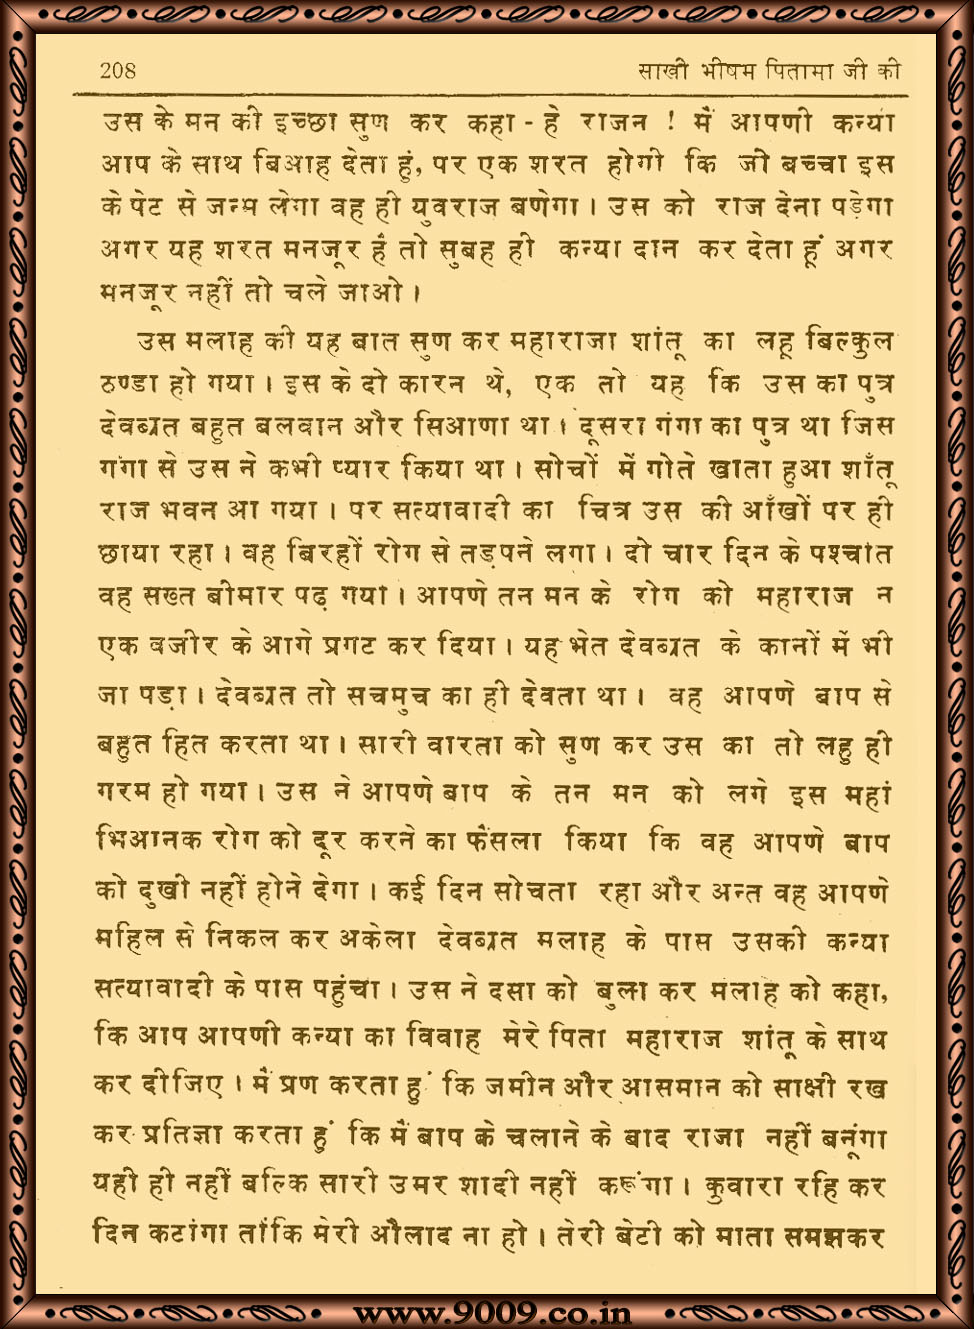 208 साखी भीषम पितामा जी की
उस के मन की इच्छा सुण कर कहा - हे राजन ! मैं आपणी कन्या
आप के साथ बिआह देता हुं, पर एक शरत होगी कि जो बच्चा इस
के पेट से जन्म लेगा वह ही युवराज बणेगा । उस को राज देना पड़ेगा
अगर यह शरत मनजूर है तो सुबह ही कन्या दान कर देता हूं अगर
मनजूर नहीं तो चले जाओ ।
उस मलाह की यह बात सुण कर महाराजा शांतू का लहू बिल्कुल
ठण्डा हो गया । इस के दो कारन थे, एक तो यह कि उस का पुत्र
देवब्रत बहुत बलवान और सिआणा था । दूसरा गंगा का पुत्र था जिस
गंगा से उस ने कभी प्यार किया था । सोचों में गोते खाता हुआ शाँतू
राज भवन आ गया । पर सत्यावादी का चित्र उस की आँखों पर ही
छाया रहा । वह बिरहों रोग से तड़पने लगा । दो चार दिन के पश्चांत
वह सख्त बीमार पढ़ गया । आपणे तन मन के रोग को महाराज न
एक वजीर के आगे प्रगट कर दिया । यह भेत देवब्रत के कानों में भी
जा पड़ा । देवब्रत तो सचमुच का ही देवता था । वह आपणे बाप से
बहुत हित करता था । सारी वारता को सुण कर उस का तो लहु ही
गरम हो गया । उस ने आपणे बाप के तन मन को लगे इस महां
भिआनक रोग को दूर करने का फैसला किया कि वह आपणे बाप
को दुखी नहीं होने देगा । कई दिन सोचता रहा और अन्त वह आपणे
महिल से निकल कर अकेला देवब्रत मलाह के पास उसकी कन्या
सत्यावादी के पास पहुंचा । उस ने दसा को बुला कर मलाह को कहा,
कि आप आपणी कन्या का विवाह मेरे पिता महाराज शांतू के साथ
कर दीजिए । मैं प्रण करता हुं कि जमीन और आसमान को साक्षी रख
कर प्रतिज्ञा करता हुं कि मैं बाप के चलाने के बाद राजा नहीं बनूंगा
यही ही नहीं बल्कि सारी उमर शादी नहीं करूंगा । कुवारा रहि कर
दिन कटांगा तांकि मेरी औलाद ना हो । तेरी बेटी को माता समझकर
www.9009.co.in